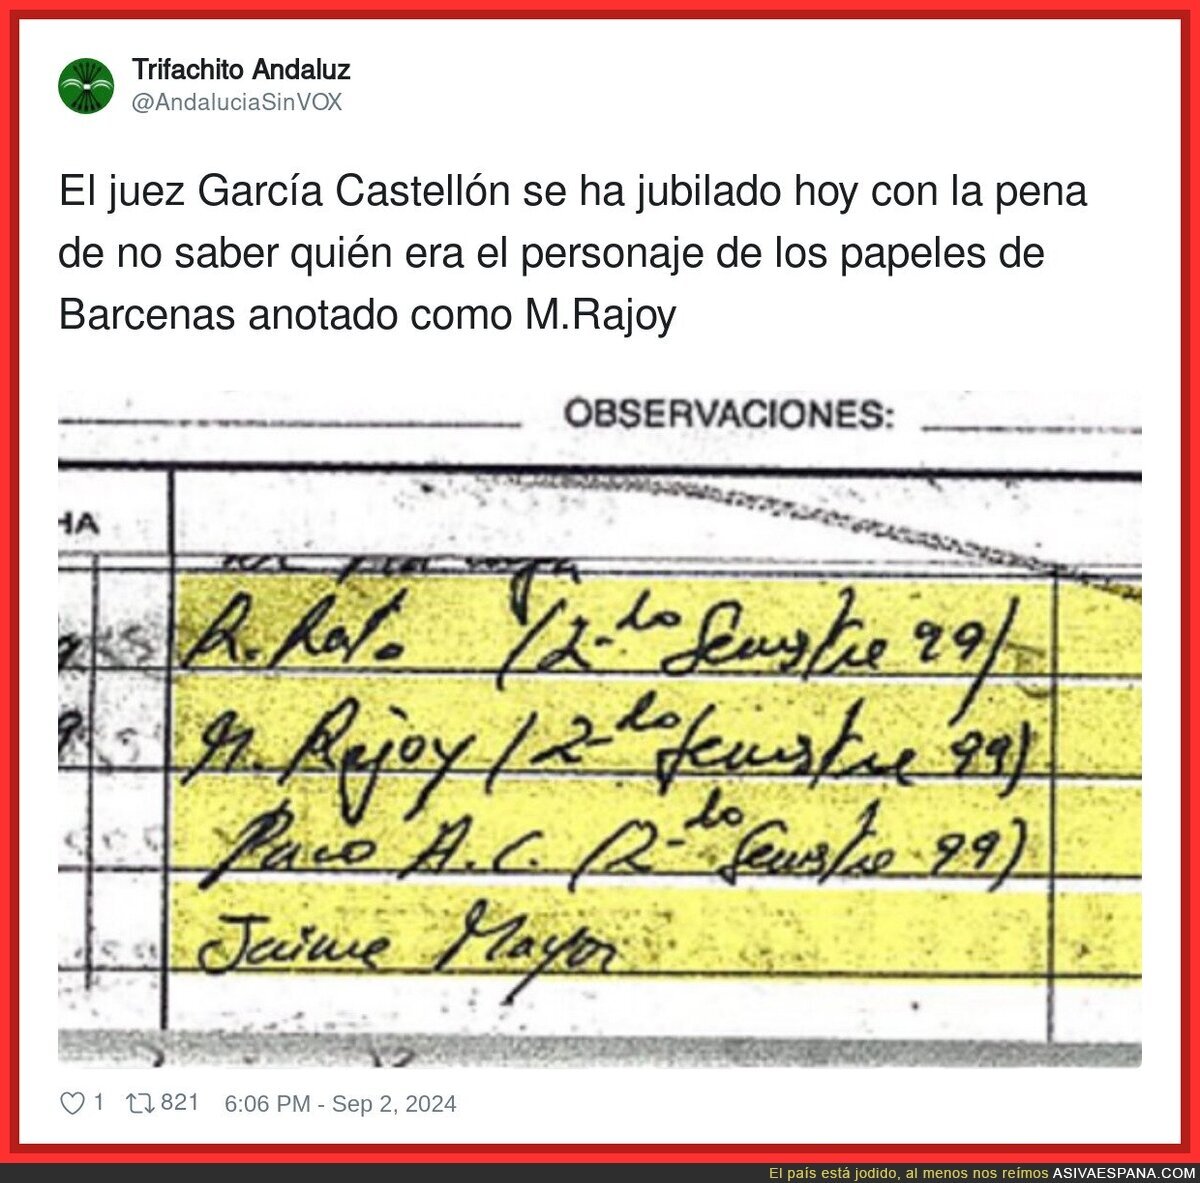 Trifachito Andaluz
@AndaluciaSinVOX
El juez García Castellón se ha jubilado hoy con la pena
de no saber quién era el personaje de los papeles de
Barcenas anotado como M.Rajoy
OBSERVACIONES:
HA
R. Rato (2-do Semestre 99)
M. Rajoy (2-do Semestre 99)
Paco A.C. (2-do Semestre 99)
Jaime Mayor
1 821 6:06 PM - Sep 2, 2024
El país está jodido, al menos nos reímos ASIVAESPANA.COM